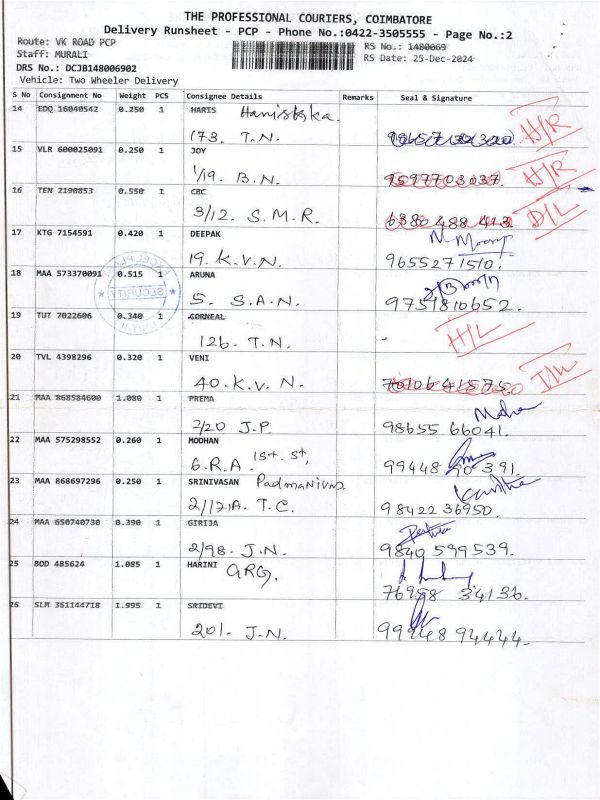 THE PROFESSIONAL COURIERS, COIMBATORE
Delivery Runsheet - PCP - Phone No.:0422-3505555 - Page No.:2
Route: VK ROAD PCP
Staff: MURALI
DRS No.: DCJB148006902
Vehicle: Two Wheeler Delivery
RS No.: 1480069
RS Date: 25-Dec-2024
S No Consignment No Weight PCS Consignee Details Remarks Seal & Signature
14 EDQ 16040542 0.250 1 HARIS
173. T.N. H/R
15 VLR 600025091 0.250 1 JOY
1/19. B.N. 9597703037. H/R
16 TEN 2190853 0.550 1 CBC
3/12. S.M.R. 6380 488 413 D/L
17 KTG 7154591 0.420 1 DEEPAK
19. K.V.N. 9655271510.
18 MAA 573370091 0.515 1 ARUNA
5. S.A.N. 9751810652.
SECURITY
19 TUT 7022606 0.340 1 CORNEAL
126. T.N. H/L
20 TVL 4398296 0.320 1 VENI
40. K.V.N.
21 MAA 868584600 1.080 1 PREMA
2/20 J.P. 98655 66041.
22 MAA 575298552 0.260 1 MODHAN
6.R.A. 1st. St, 99448 90 391.
23 MAA 868697296 0.250 1 SRINIVASAN
2/121A. T.C. 98422 36950.
24 MAA 650740730 0.390 1 GIRIJA
2/98. J.N. 9840 599539.
25 BOD 485624 1.085 1 HARINI GRG.
76958 34136.
26 SLM 351144718 1.995 1 SRIDEVI
201. J.N. 99948 94444.